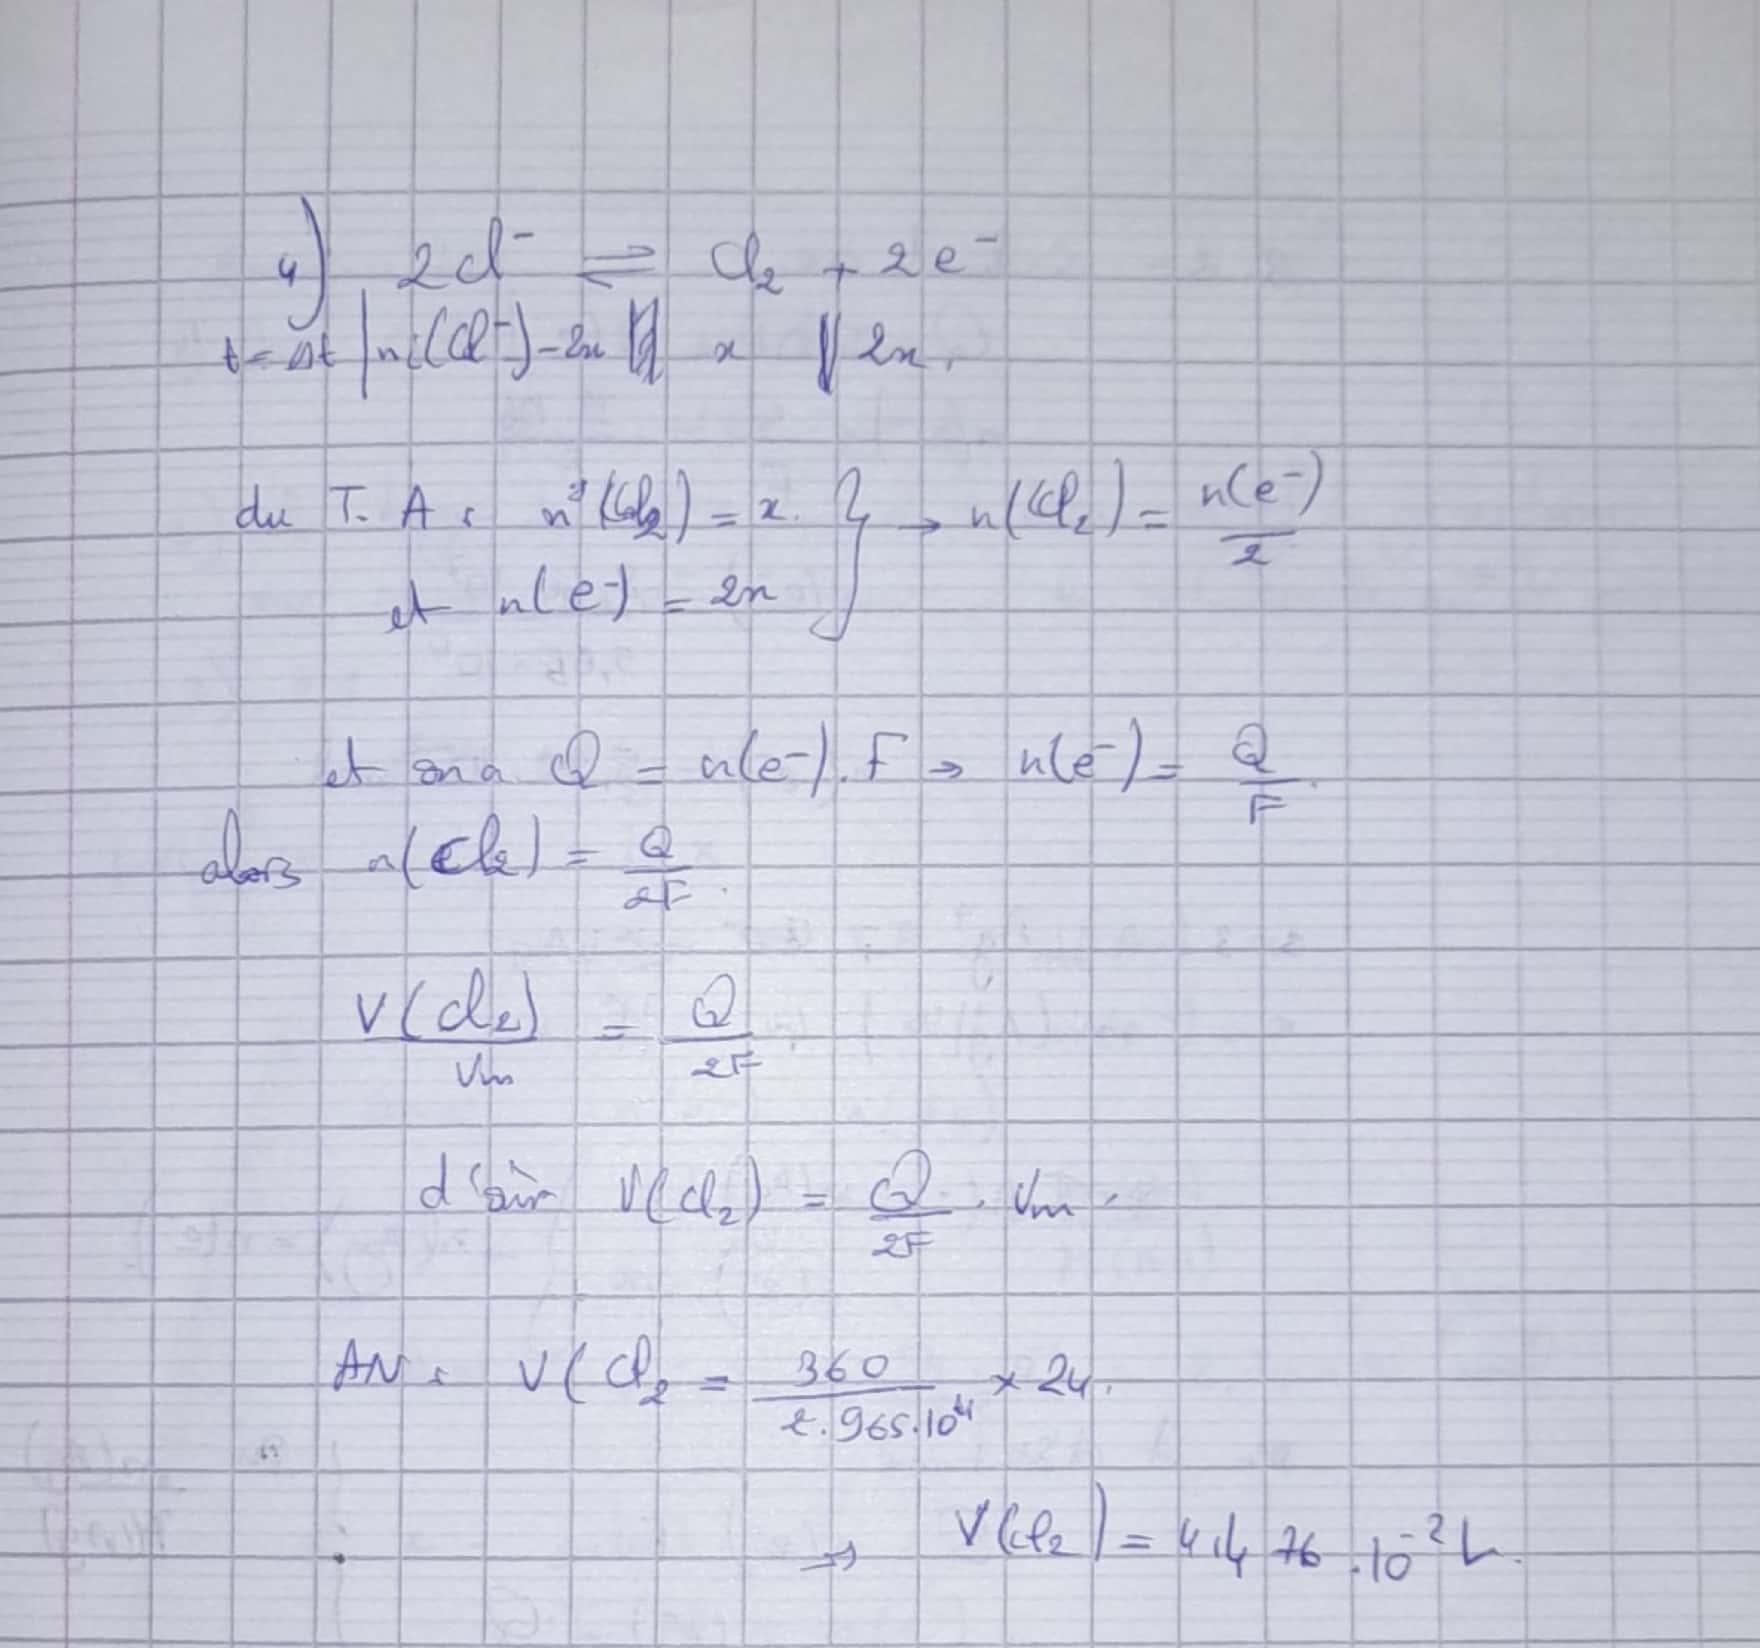 4) 2Cl⁻ ⇌ Cl₂ + 2e⁻
t = Δt | ni(Cl⁻) - 2x || x || 2x.
du T. A : n(Cl₂) = x. } → n(Cl₂) = n(e⁻)/2
et n(e⁻) = 2x
et on a Q = n(e⁻). F → n(e⁻) = Q/F.
alors n(Cl₂) = Q/2F.
V(Cl₂)/Vm = Q/2F
d'où V(Cl₂) = Q/2F . Vm.
AN : V(Cl₂ = 360/2.965.10⁴ × 24.
⇒ V(Cl₂) = 4,476 .10⁻² L.